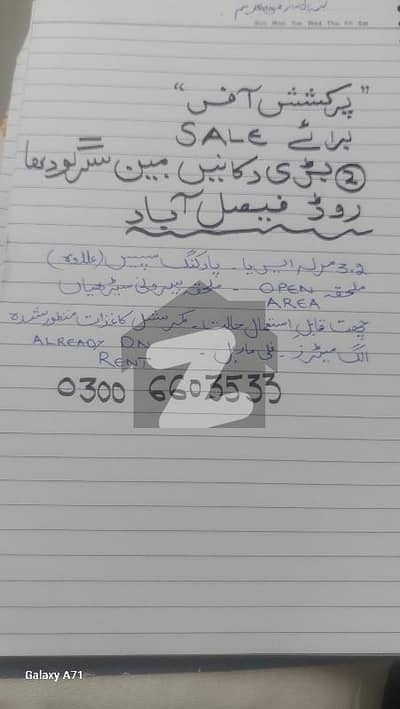 Sun Mon Tue Wed Thu Fri Sat
”پرکشش آفس“
برائے SALE
② بڑی دکانیں مین سرگودھا
روڈ فیصل آباد
3.2 مرلہ ایریا - پارکنگ سپیس (علاوہ)
ملحقہ OPEN AREA - ملحقہ بیرونی سیڑھیاں
چھت قابلِ استعمال حالت - کمرشل کاغذات منظور شدہ
الگ میٹرز - ALREADY ON RENT
0300 6603533
Galaxy A71